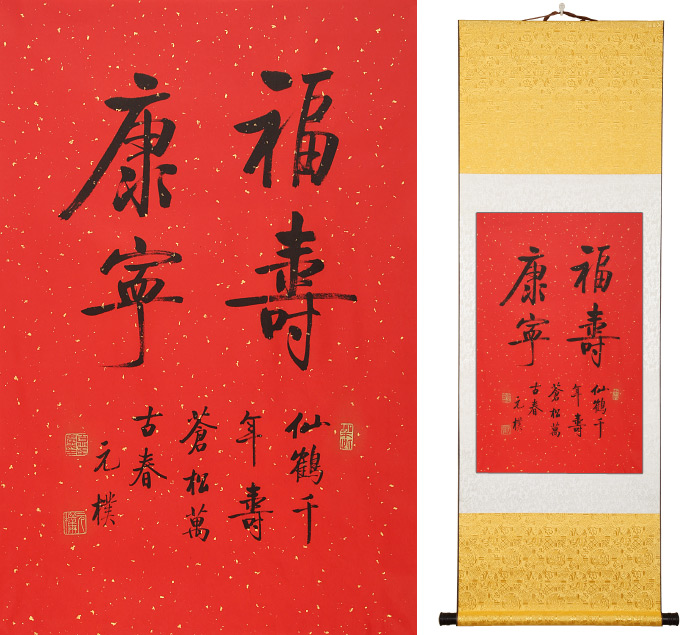 福壽
康寧
仙鶴千
年壽
蒼松萬
古春
元樸
福壽
康寧
仙鶴千
年壽
蒼松萬
古春
元樸